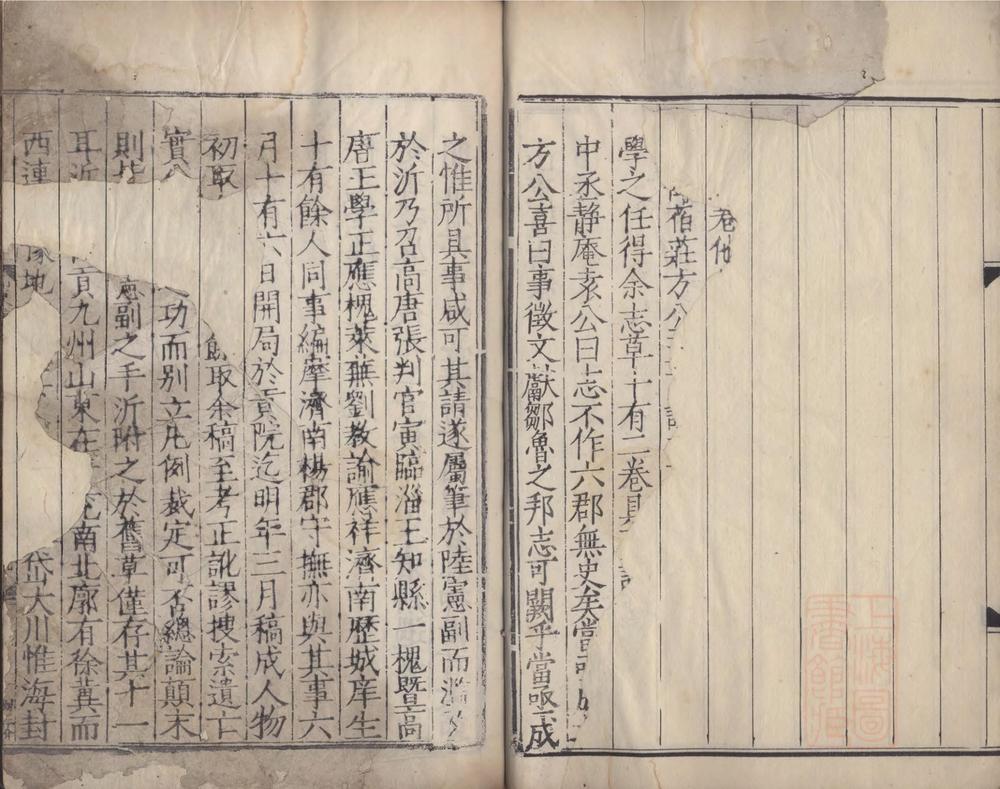 卷
莊方公
學之任得余志草十有二卷具
中丞靜庵袁公曰志不作六郡無史矣當
方公喜曰事徵文獻鄒魯之邦志可闕乎當亟成
之惟所具事咸可其請遂屬筆於陸憲副而
於沂乃召高唐張判官寅臨淄王知縣一槐暨高
唐王學正應槐萊蕪劉教諭應祥濟南歷城庠生
十有餘人同事編摩濟南楊郡守撫亦與其事六
月十有六日開局於貢院迄明年三月稿成人物
初取 取余稿至考正訛謬搜索遺亡
實 功而別立凡例裁定可否總論顛末
則 憲副之手沂附之於舊草僅存其十一
耳 貢九州山東在 兗南北廓有徐冀而
西連 地 岱大川惟海封
上海圖書館藏